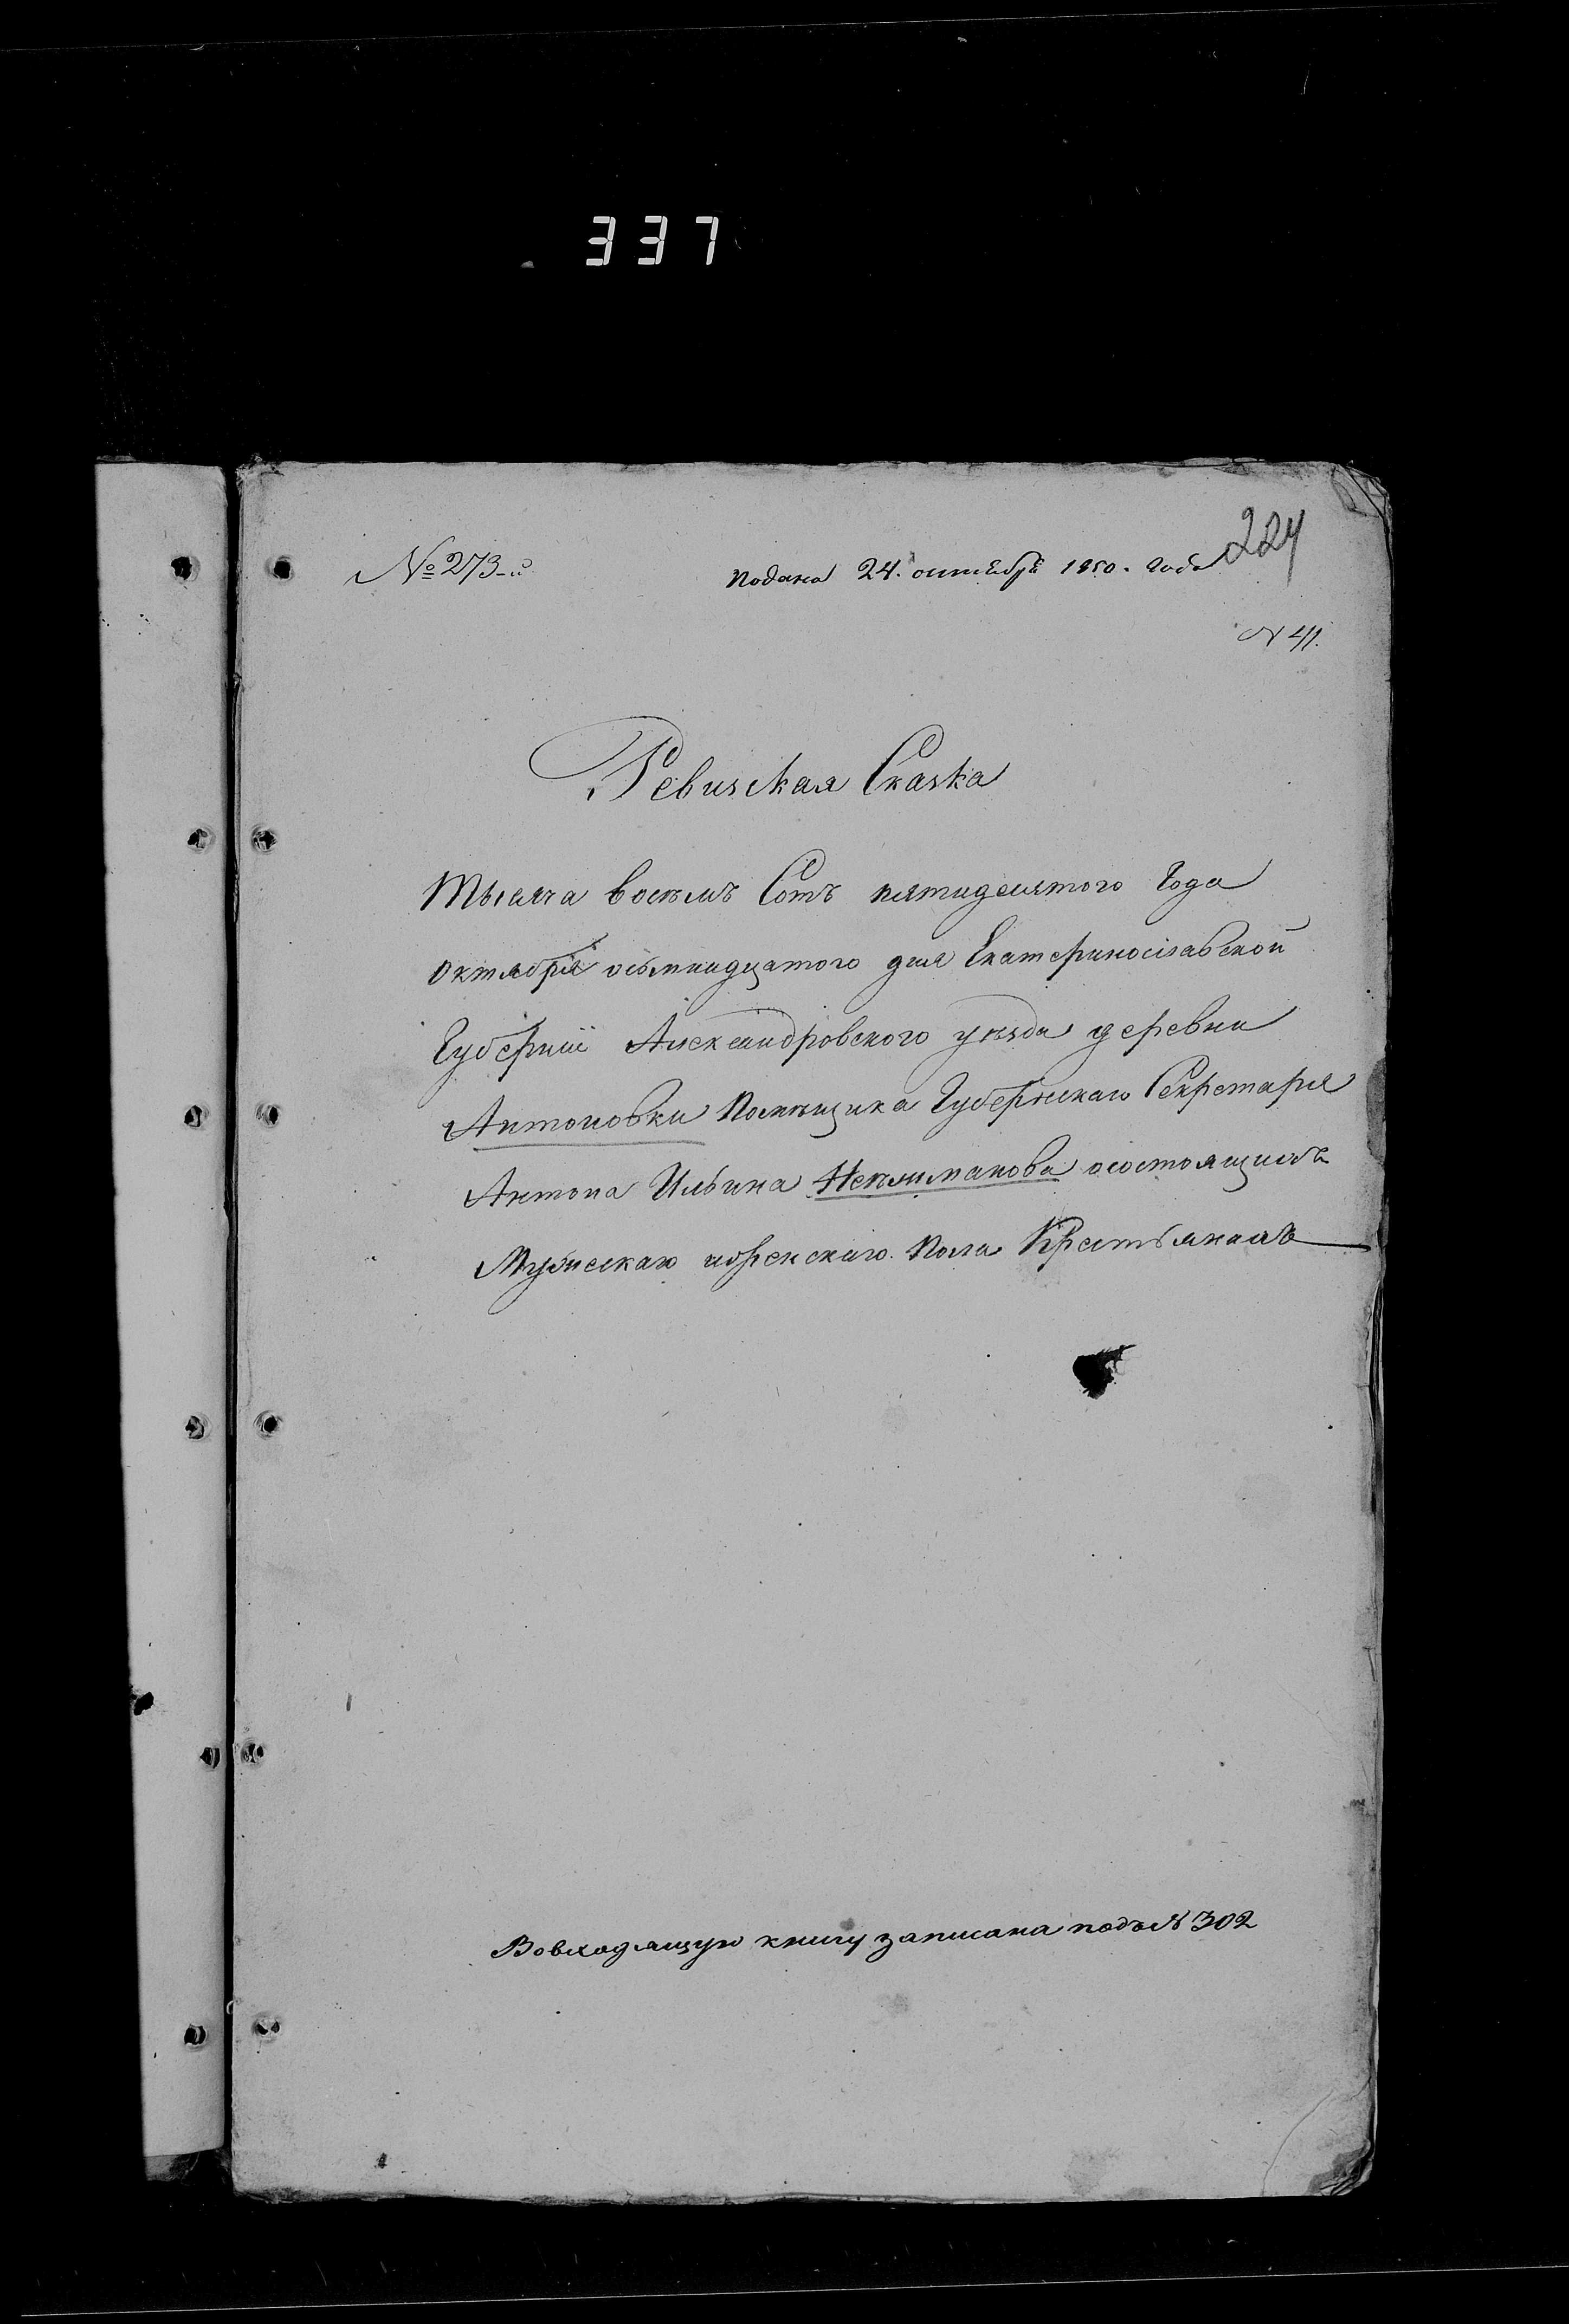 337
224
№ 273-й
Подана 24. октября 1850. года
N 41.
Ревизская Сказка
Тысяча восемъ Сотъ пятидесятого Года
Октября осьмнадцатого дня Екатеринославской
Губернии Александровского уѣзда деревни
Антоновки Помѣщика Губернскаго Секретаря
Антона Ильина осостоящихъ
Мужескаго иженскаго Пола Крестьянахъ
Вовходящую книгу записана подъ № 302